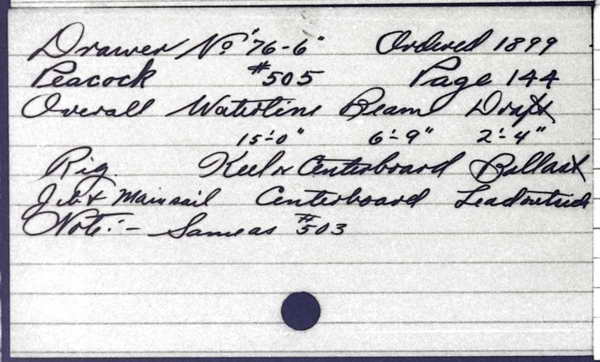 Drawer No "76-6" Ordered 1899
Peacock #505 Page 144
Overall Waterline Beam Draft
15'-0" 6'-9" 2'-4"
Rig. Keel or Centerboard Ballast
Jib & Mainsail Centerboard Lead outside
Note:- Same as #503